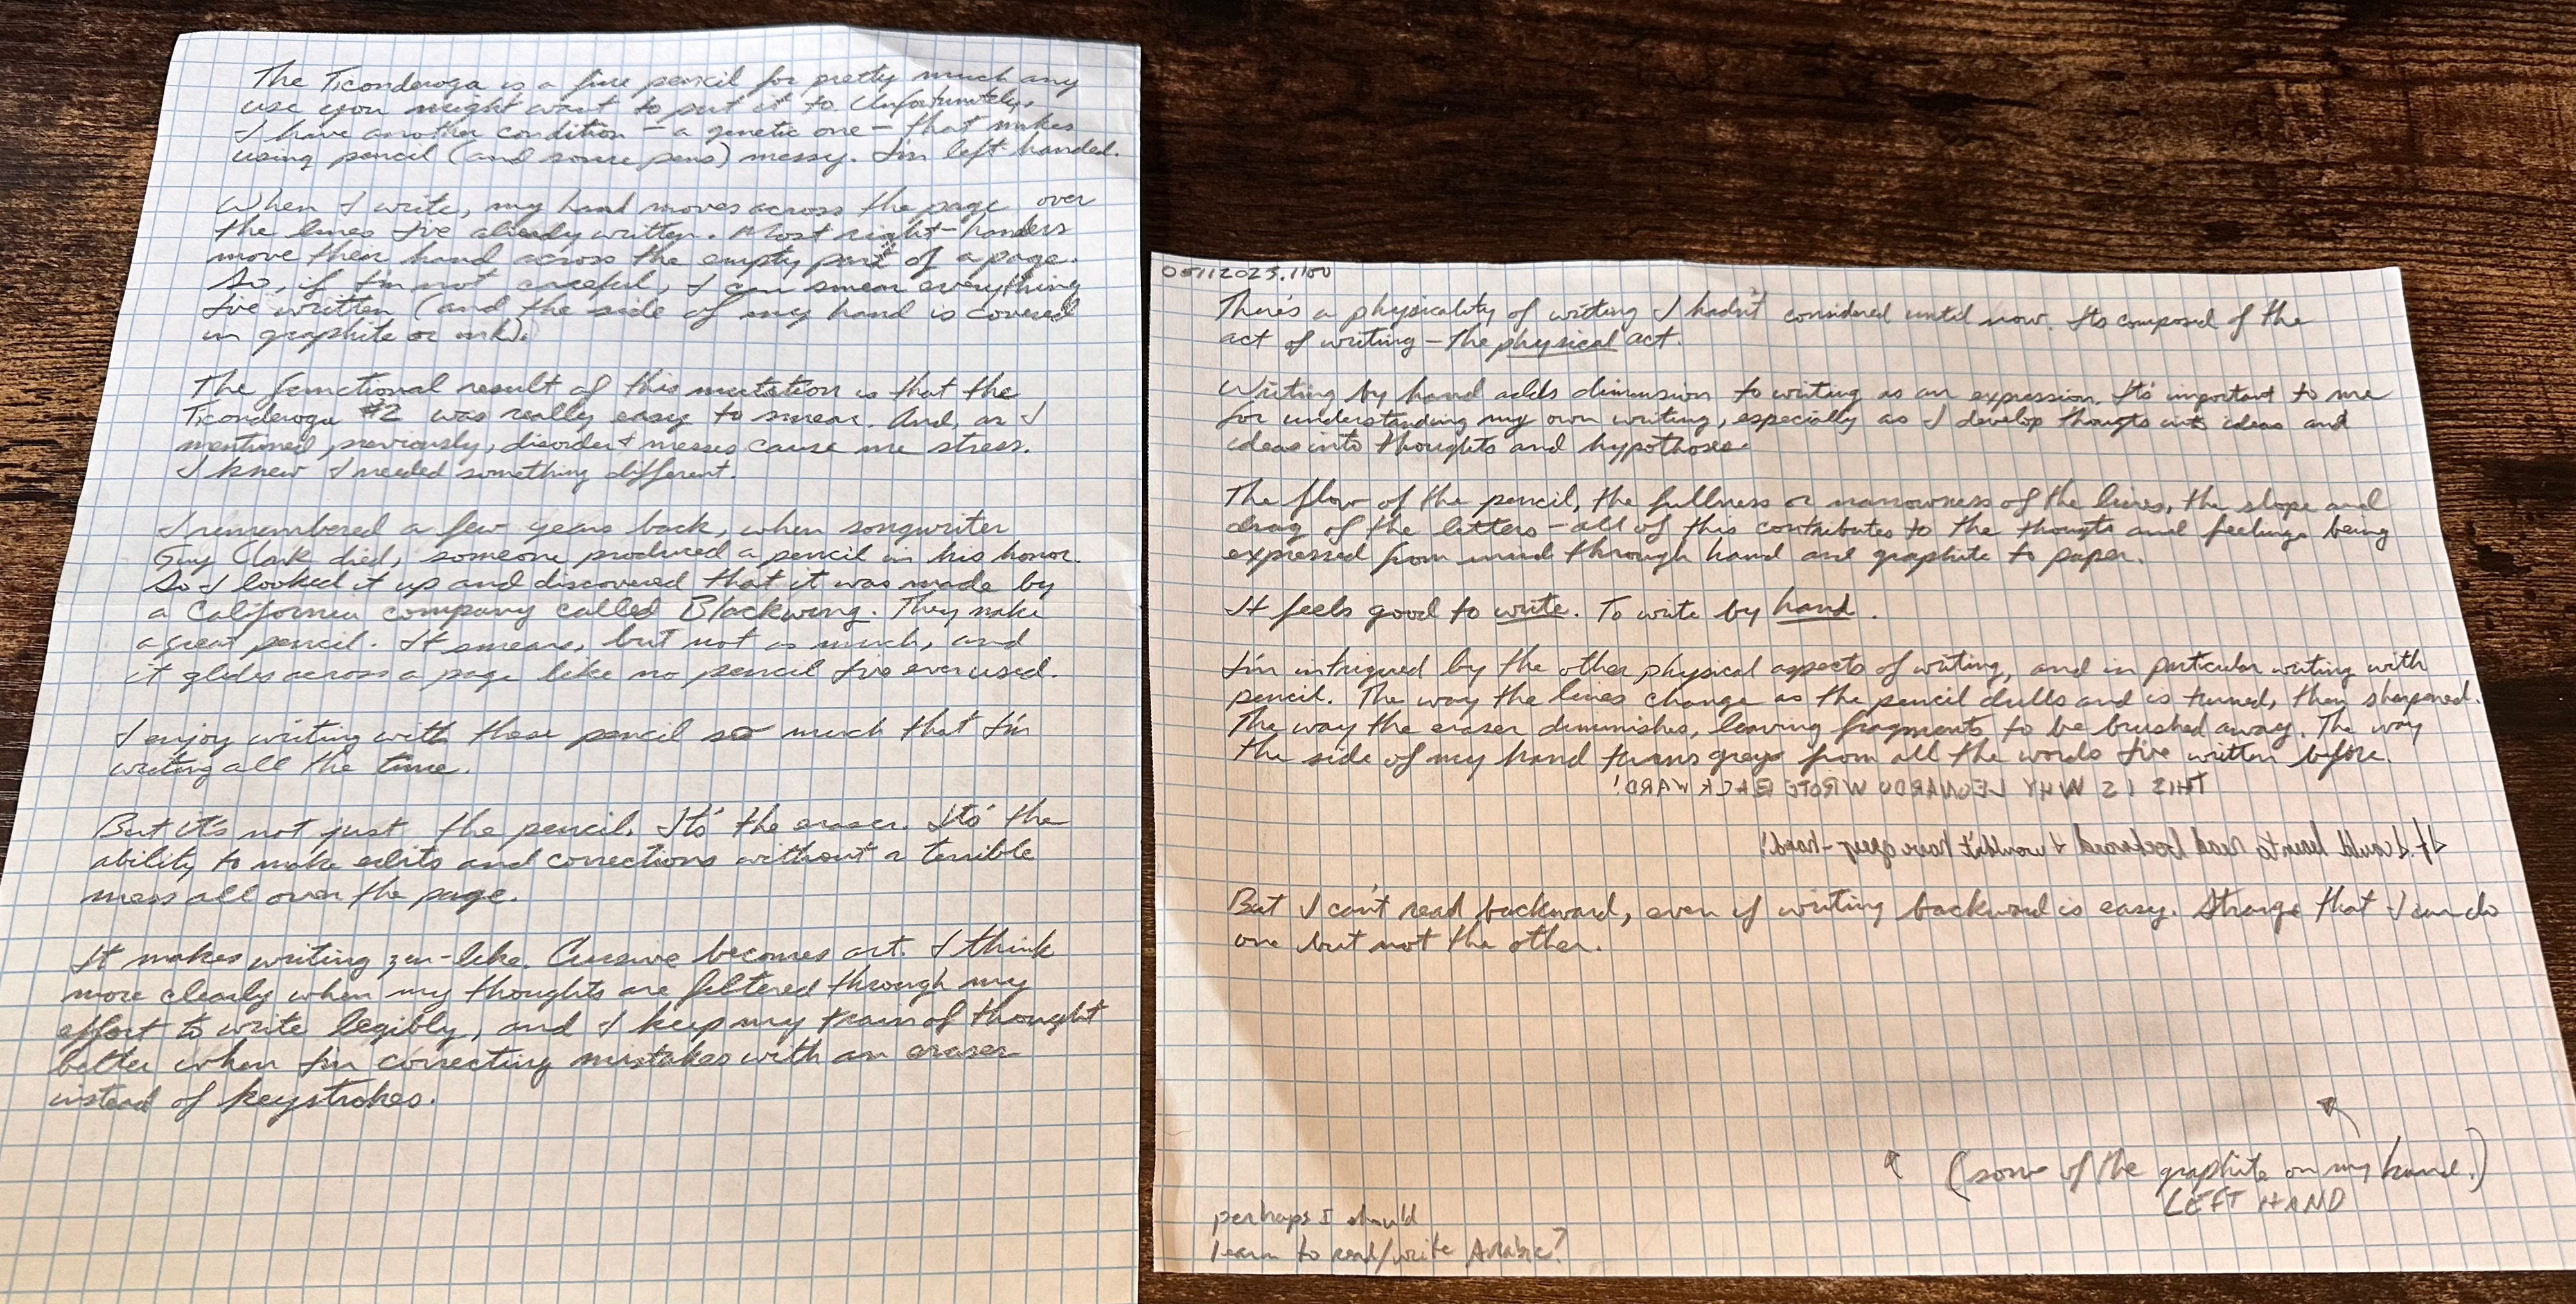 The Ticonderoga is a fine pencil for pretty much any
use you might want to put it to. Unfortunately,
I have another condition – a genetic one – that makes
using pencil (and some pens) messy. I'm left-handed.
When I write, my hand moves across the page over
the lines I've already written. Most right-handers
move their hand across the empty part of a page.
So, if I'm not careful, I can smear everything
I've written (and the side of my hand is covered
in graphite or ink).
The functional result of this mutation is that the
Ticonderoga #2 was really easy to smear. And, as I
mentioned, previously, disorder & messes cause me stress.
I knew I needed something different.
I remembered a few years back, when songwriter
Guy Clark died, someone produced a pencil in his honor.
So I looked it up and discovered that it was made by
a California company called Blackwing. They make
a great pencil. It smears, but not as much, and
it glides across a page like no pencil I've ever used.
I enjoy writing with these pencil so much that I'm
writing all the time.
But it's not just the pencil. It's the eraser. It's the
ability to make edits and corrections without a terrible
mess all over the page.
It makes writing zen-like. Cursive becomes art. I think
more clearly when my thoughts are filtered through my
effort to write legibly, and I keep my train of thought
better when I'm correcting mistakes with an eraser
instead of keystrokes.
There's a physicality of writing I hadn't considered until now. Its composed of the
act of writing – the physical act.
Writing by hand adds dimension to writing as an expression. It's important to me
for understanding my own writing, especially as I develop thougts into ideas and
ideas into thoughts and hypotheses.
The flow of the pencil, the fullness or narrowness of the lines, the slope and
drag of the letters – all of this contributes to the thougts and feelings being
expressed from mind through hand and graphite to paper.
It feels good to write. To write by hand.
I'm intrigued by the other physical aspects of writing, and in particular writing with
pencil. The way the lines change as the pencil dulls and is turned, then sharpened.
The way the eraser diminishes, leaving fragments to be brushed away. The way
the side of my hand turns greys from all the words I've written before.
THIS IS WHY LEONARDO WROTE BACKWARD!
If I could learn to read backward I wouldn't have grey-hand!
But I can't read backward, even if writing backward is easy. Strange that I can do
one but not the other.
(some of the graphite on my hand.)
LEFT HAND
perhaps I should
learn to read/write Arabic?